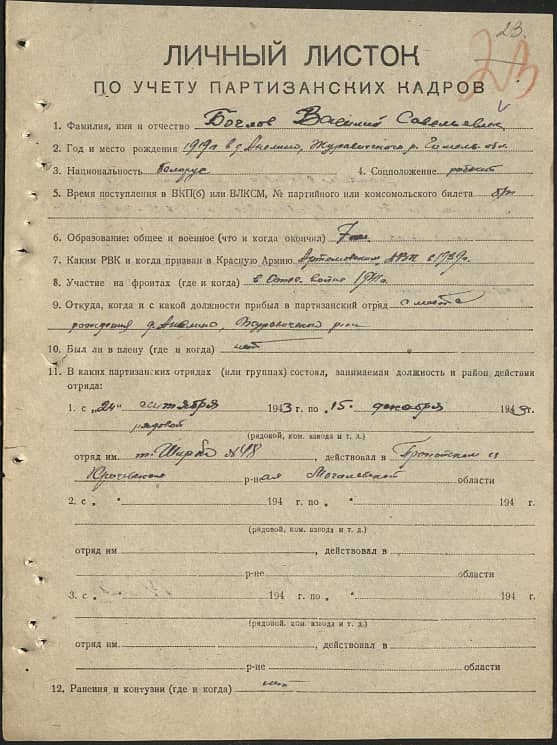 23.
23
ЛИЧНЫЙ ЛИСТОК
ПО УЧЕТУ ПАРТИЗАНСКИХ КАДРОВ
1. Фамилия, имя и отчество Василий Савельевич
2. Год и место рождения 1919г. в д. Журавичского р. Гомель. обл.
3. Национальность белорус 4. Соцположение рабочий
5. Время поступления в ВКП(б) или ВЛКСМ, № партийного или комсомольского билета б/п
6. Образование: общее и военное (что и когда окончил) 7 кл.
7. Каким РВК и когда призван в Красную Армию Артемовским РВК в 1939г.
8. Участие на фронтах (где и когда) в Отеч. войне 1941г.
9. Откуда, когда и с какой должности прибыл в партизанский отряд с места
рождения д. Журавичский р-он
10. Был ли в плену (где и когда) нет
11. В каких партизанских отрядах (или группах) состоял, занимаемая должность и район действия
отряда:
1. с „24" сентября 1943 г. по „15" декабря 1943 г.
рядовой
(рядовой, ком. взвода и т. д.)
отряд им № 48, действовал в Пропойском и
р-нах Могилевской области
2. с „ " 194 г. по „ " 194 г.
(рядовой, ком. взвода и т. д.)
отряд им. , действовал в
р-не области
3. с „ " 194 г. по „ " 194 г.
(рядовой, ком. взвода и т. д.)
отряд им. , действовал в
р-не области
12. Ранения и контузии (где и когда) нет